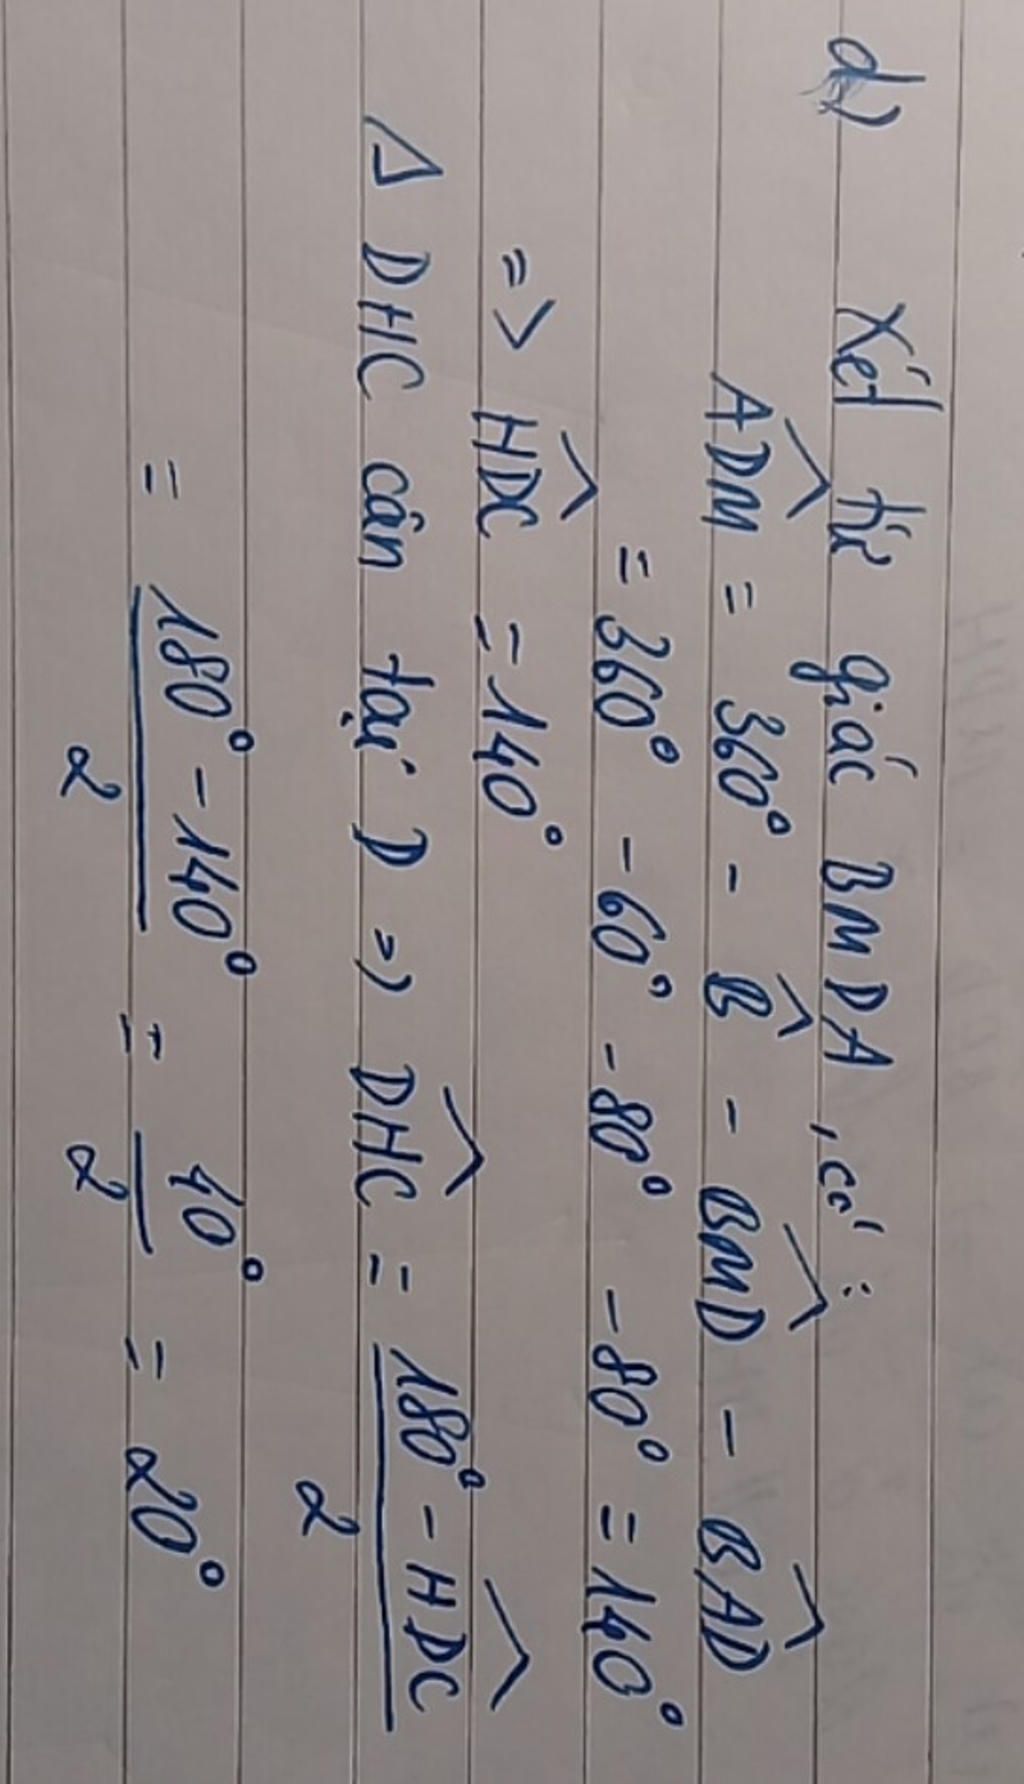 d) Xét tứ giác BMDA, có:
ADM^ = 360° - B^ - BMD^ - BAD^
= 360° - 60° - 80° - 80° = 140°
=> HDC^ = 140°
Δ DHC cân tại D => DHC^ = (180° - HDC^)/2
= (180° - 140°)/2 = 40°/2 = 20°